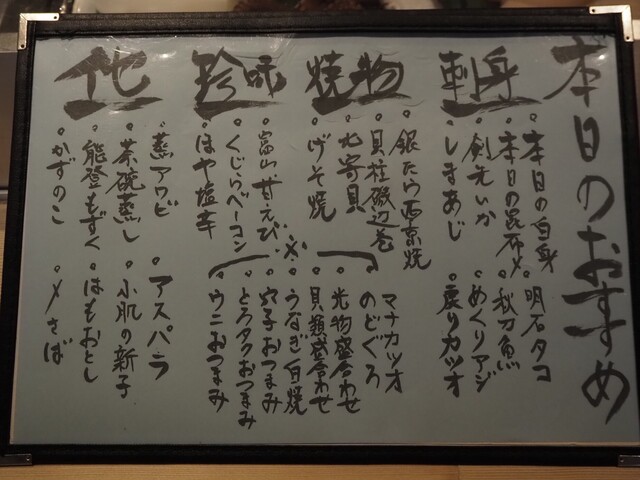 本日のおすすめ
刺身
。本日の白身 。明石タコ
。本日の昆布〆 。秋刀魚
。剣先いか 。めくりアジ
。しまあじ 。戻りカツオ
焼物
。銀だら西京焼
。貝柱磯辺巻
。北寄貝
。げそ焼
マナカツオ
のどぐろ
。光物盛合わせ
。貝類盛合わせ
珍味
。富山甘えび
。くじらベーコン
。ほや塩辛
。うなぎ白焼
。穴子おつまみ
。とろタクおつまみ
。ウニおつまみ
他
。蒸アワビ 。アスパラ
。茶碗蒸し 。小肌の新子
。能登もずく 。はもおとし
。かずのこ 。〆さば